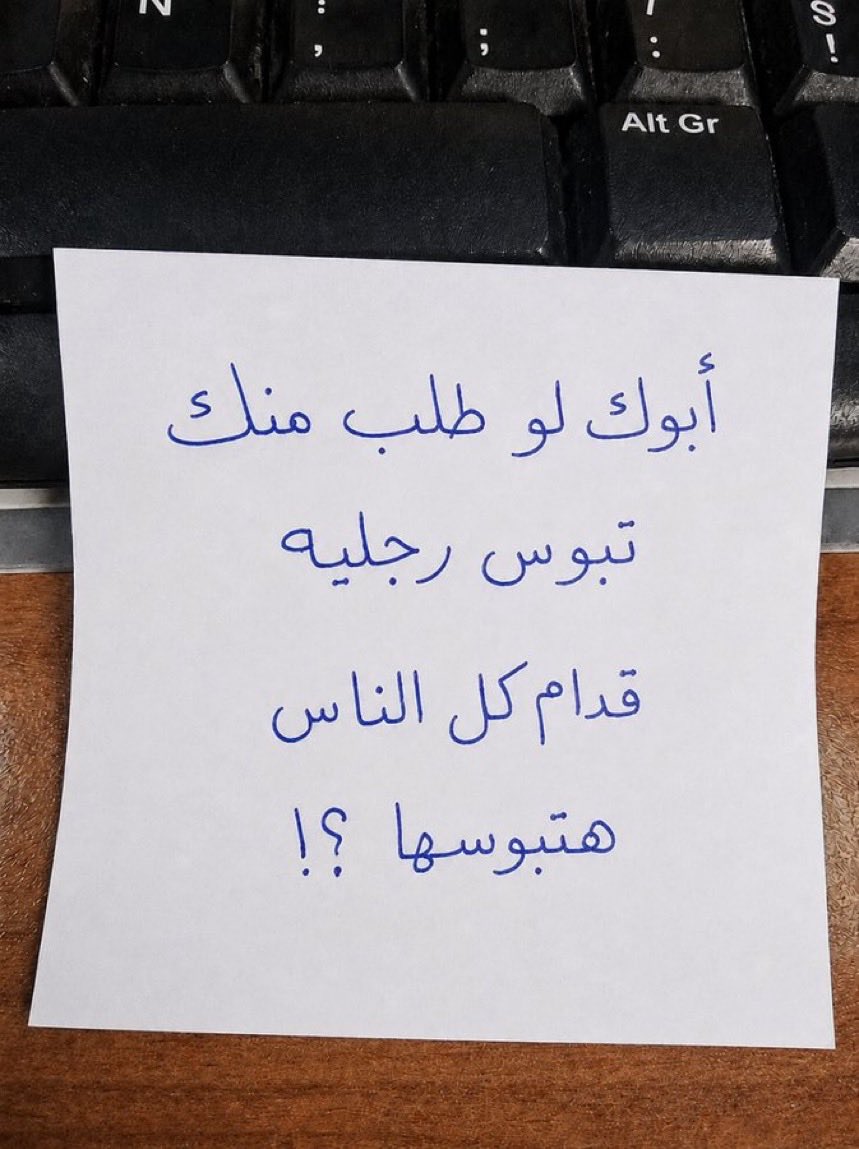 N : ,
;
/ :
S !
Alt Gr
أبوك لو طلب منك
تبوس رجليه
قدام كل الناس
هتبوسها ؟!